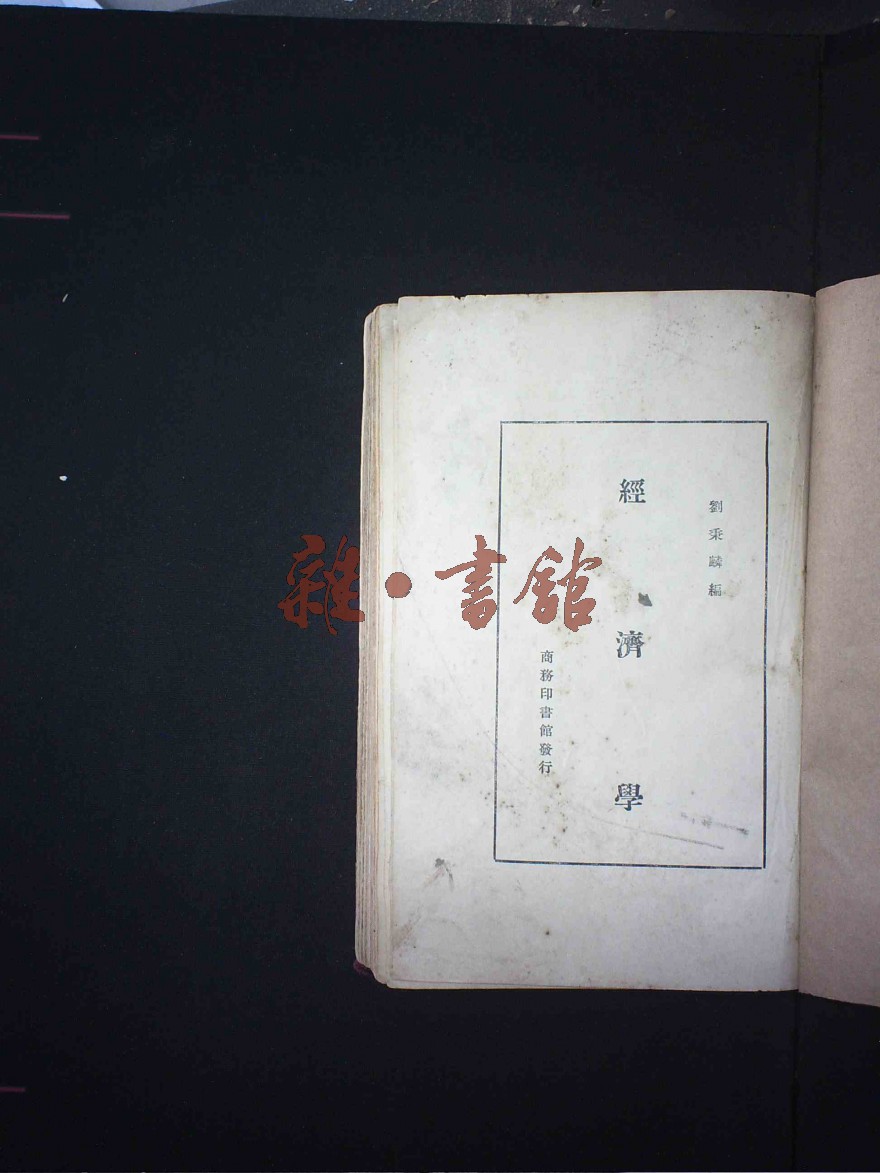 劉秉麟編
經濟學
商務印書館發行
雜·書館